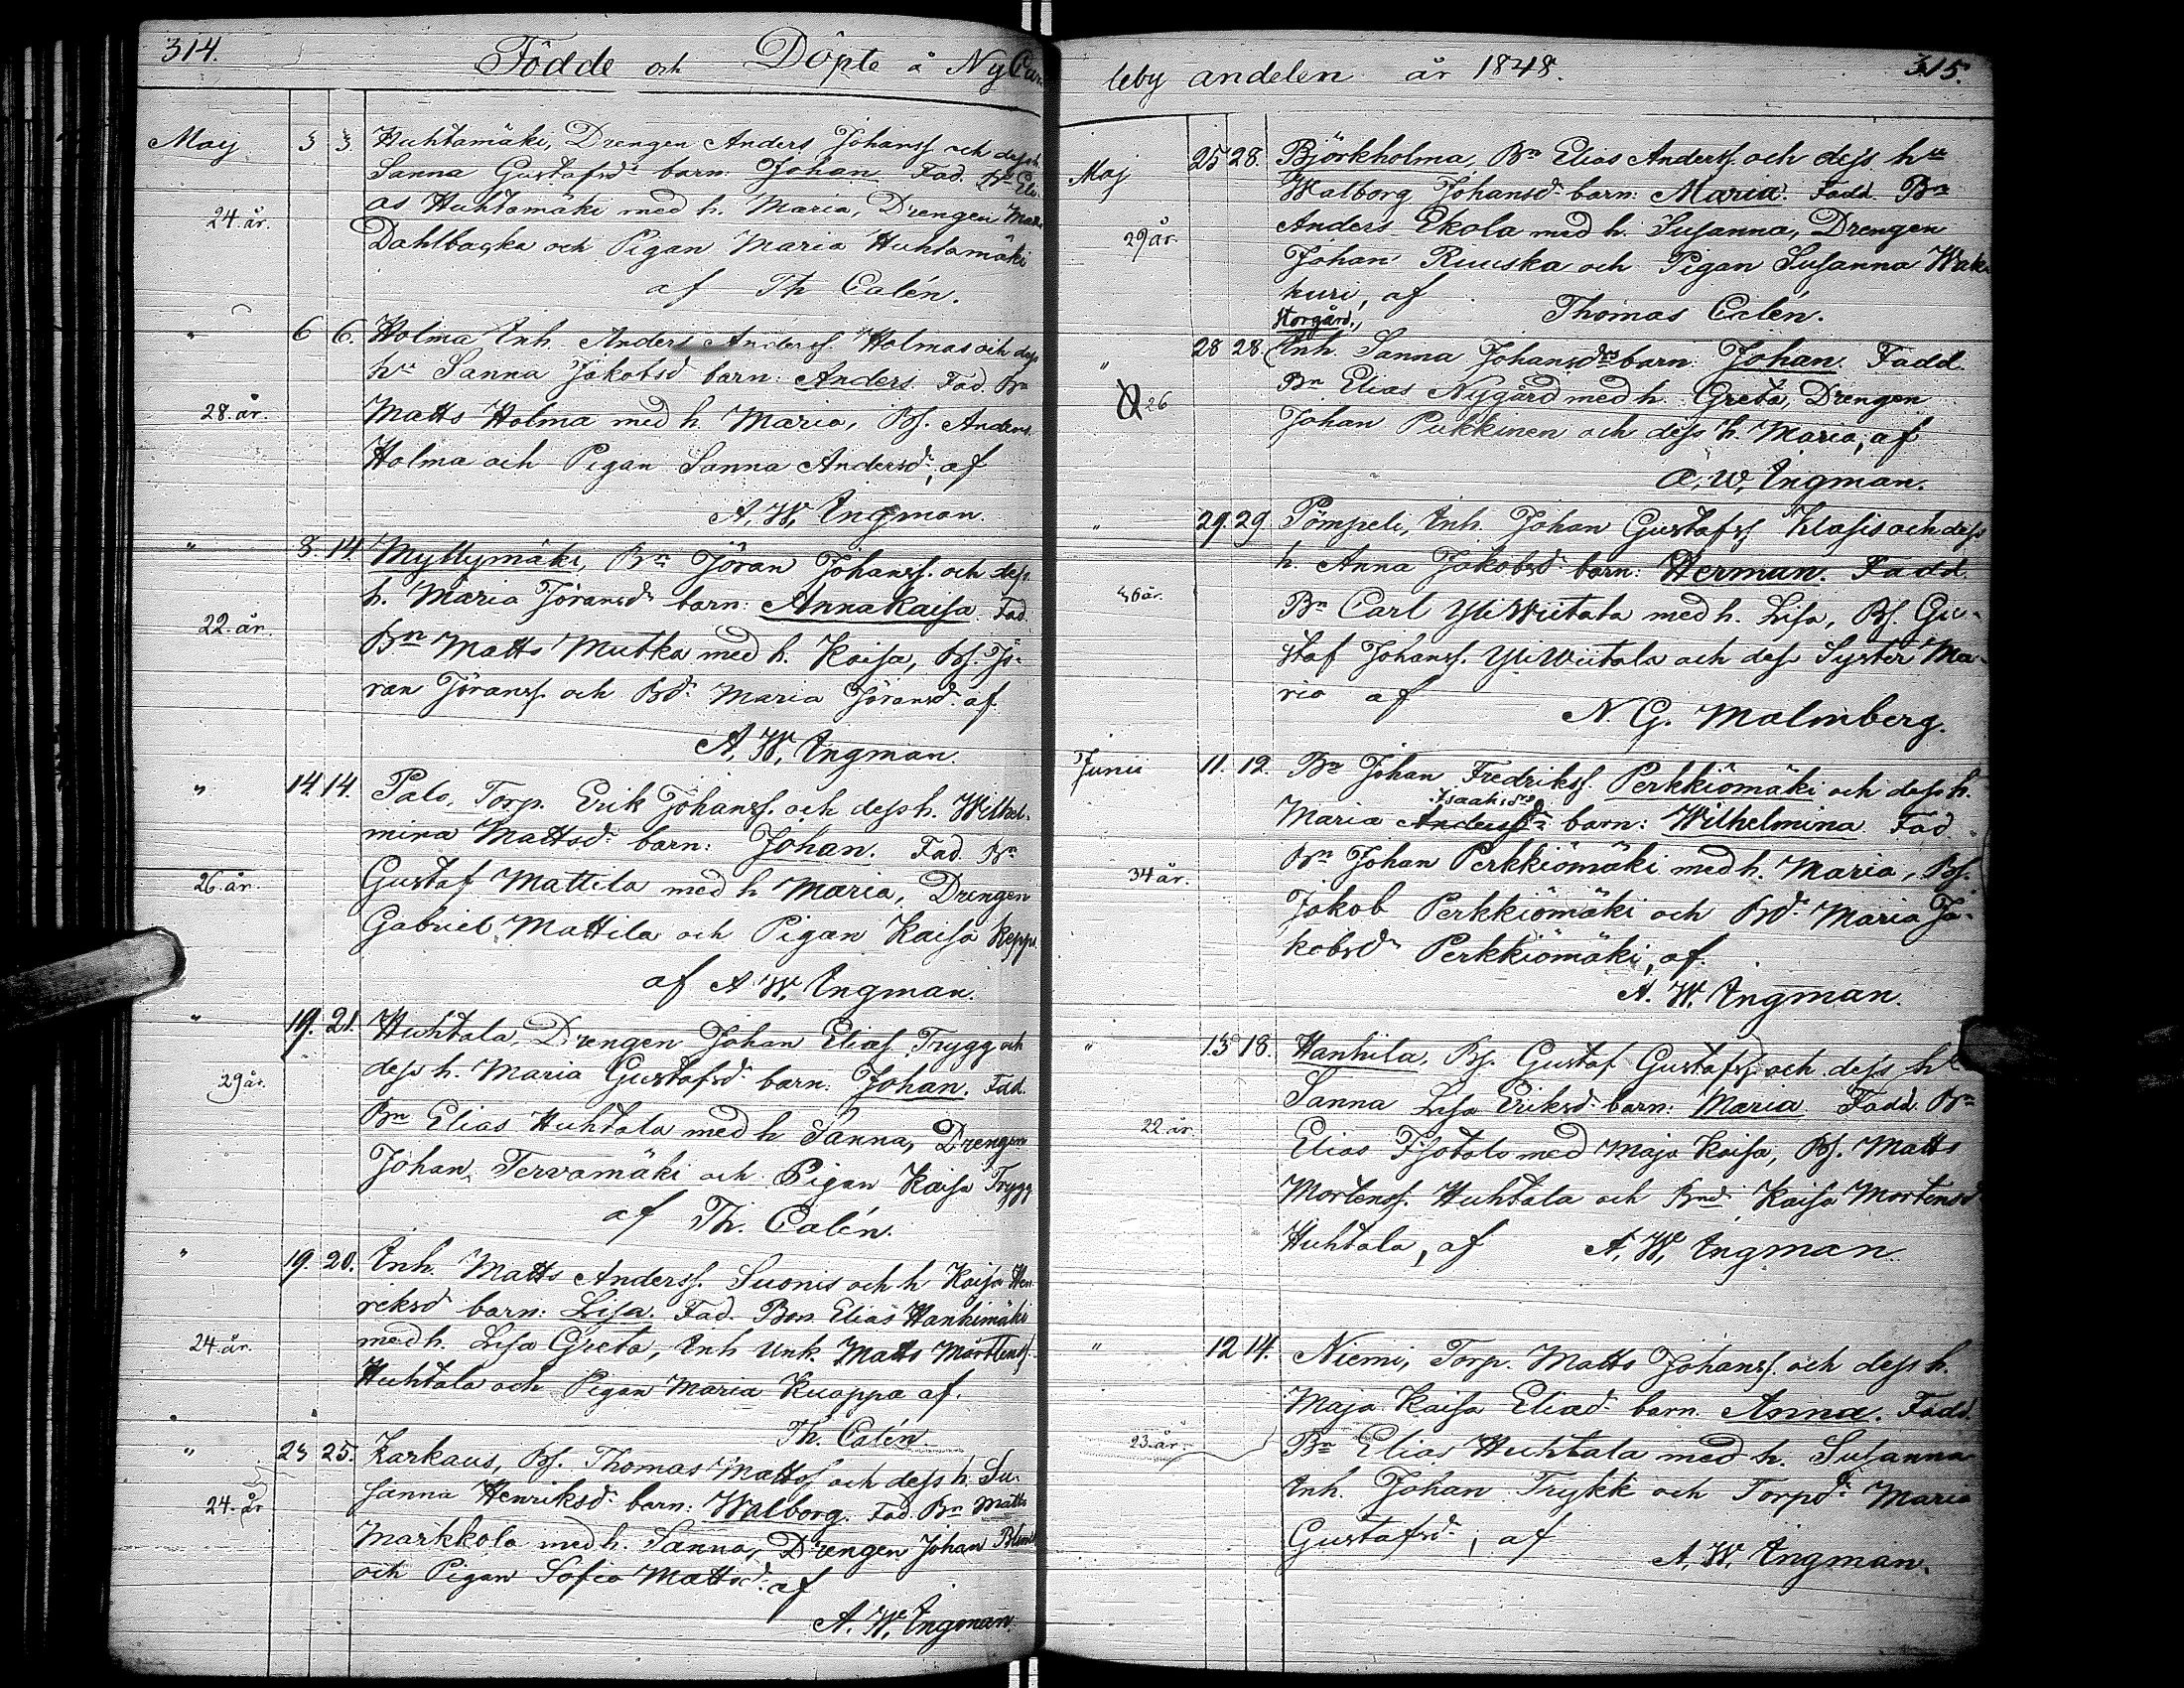 314.
Födde och Döpte å Ny Car
Maij 3 3. Huhtamäki, Drengen Anders Johanss. och dess h.
Sanna Gustafsd. barn: Johan. Fad. Bn Eli-
24. år. as Huhtamäki med h. Maria, Drengen Matts
Dahlbacka och Pigan Maria Huhtamäki
af Th Calén.
" 6 6. Holma Inh. Anders Anderss. Holmas och dess
hu Sanna Jakobsd barn: Anders. Fad. Bn
28. år. Matts Holma med h. Maria, Bs. Anders
Holma och Pigan Sanna Andersd., af
A. W. Ingman.
" 8. 14. Myllymäki, Bn Jöran Johanss. och dess
h. Maria Göransd. barn: Anna Kaisa. Fad.
22. år. Bn Matts Mutka med h. Kaisa, Bs. Jö-
ran Jöranss. och Bd. Maria Jöransd. af
A. W. Ingman.
" 14. 14. Palo, Torp. Erik Johanss. och dess h. Wilhel-
mina Mattsd. barn: Johan. Fad. Bn
26. år. Gustaf Mattila med h Maria, Drengen
Gabriel Mattila och Pigan Kaisa Keppo
af A W. Ingman.
" 19. 21. Huhtala, Drengen Johan Elias. Trygg och
29 år. dess h. Maria Gustafsd. barn: Johan. Fad.
Bn Elias Huhtala med h Sanna, Drengen
Johan Tervamäki och Pigan Kaisa Trygg
af Th. Calén.
" 19. 20. Inh. Matts Anderss. Suonis och h Kaisa Hen-
reksd barn: Lisa. Fad. Bon. Elias Hankimäki
24. år. med h. Lisa Greta, Inh Unk. Matts Mårtens.
Huhtala och Pigan Maria Kuoppa af.
Th. Calén.
" 23 25. Karkaus, Bs. Thomas Mattss. och dess h. Su-
24. år sanna Henriksd. barn: Walborg. Fad. Bn Matts
Markkola med h. Sanna, Drengen Johan
och Pigan Sofia Mattsd. af
A. W. Ingman.
leby andelen år 1848. 315.
Maj 25 28. Björkholma, Bn Elias Anderss. och dess hu
Walborg Johansd. barn: Maria. Fadd. Bn
29 år. Anders Ekola med h. Susanna, Drengen
Johan Ruuska och Pigan Susanna Wak-
kuri, af Thomas Calén.
Storgård.,
" 28 28. Inh. Sanna Johansdrs barn: Johan. Fadd.
26 Bn Elias Nygård med h. Greta, Drengen
Johan Pukkinen och dess h. Maria, af
A. W. Ingman.
" 29 29 Pömpeli, Inh. Johan Gustafss. Klasis och dess
h. Anna Jakobsd. barn: Herman. Fadd.
36 år. Bn Carl Yliwiitala med h. Lisa, Bs. Gu-
staf Johanss. Yliwiitala och dess Syster Ma-
ria af
N. G. Malmberg.
Junii 11. 12. Bn Johan Fredrikss. Perkkiömäki och dess h.
Isaaksdr
Maria Andersd. barn: Wilhelmina. Fad.
34 år. Bn Johan Perkkiömäki med h. Maria, Bs.
Jakob Perkkiömäki och Bd. Maria Ja-
kobsd. Perkkiömäki, af.
A. W. Ingman.
" 13 18. Hanhila, Bs. Gustaf Gustafss. och dess hu
Sanna Lisa Eriksd. barn: Maria. Fadd. Bn
22 år. Elias Isotalo med Maja Kaisa, Bs. Matts
Mortenss. Huhtala och Bnd. Kaisa Mortensd
Huhtala, af A. W. Ingman
" 12 14. Niemi, Torp. Matts Johanss. och dess h.
Maja Kaisa Eliad. barn. Anna. Fadd.
23. år. Bn Elias Huhtala med h. Susanna
Inh. Johan Trykk och Torpd. Maria
Gustafsd., af
A. W. Ingman.